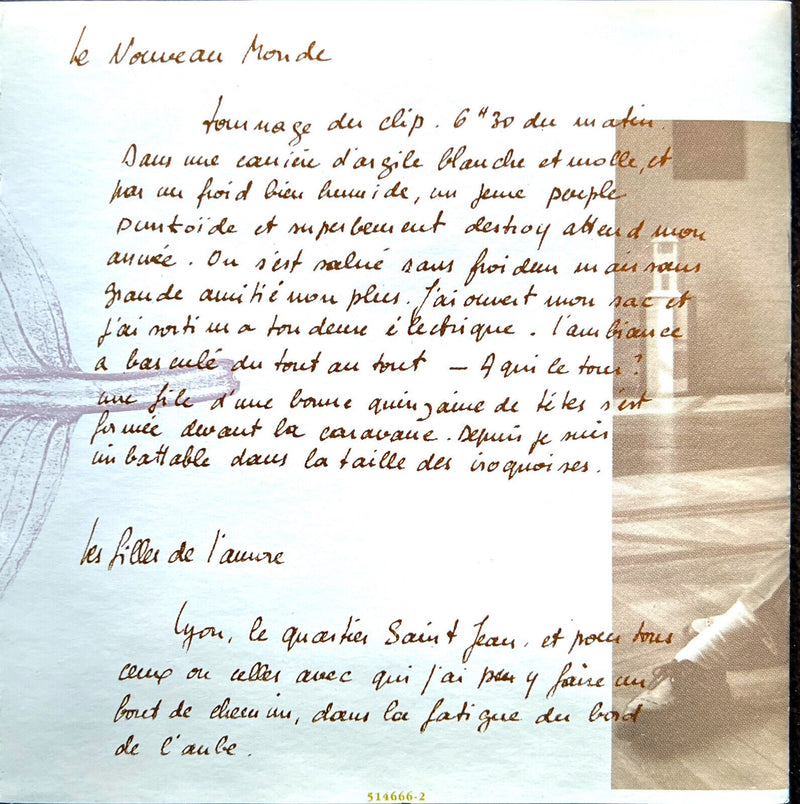 Le Nouveau Monde
Tournage du clip. 6H30 du matin.
Dans une carrière d'argile blanche et molle, et
par un froid bien humide, un jeune peuple
punkoïde et superbement destroy attend mon
arrivée. On s'est salué sans froideur mais sans
grande amitié non plus. J'ai ouvert mon sac et
j'ai sorti ma tondeuse électrique. L'ambiance
a basculé du tout au tout — A qui le tour ?
une file d'une bonne quinzaine de têtes s'est
formée devant la caravane. Depuis je suis
imbattable dans la taille des iroquoises.
Les filles de l'aurore
Lyon, le quartier Saint Jean, et pour tous
ceux ou celles avec qui j'ai pu y faire un
bout de chemin, dans la fatigue du bord
de l'aube.
514666-2